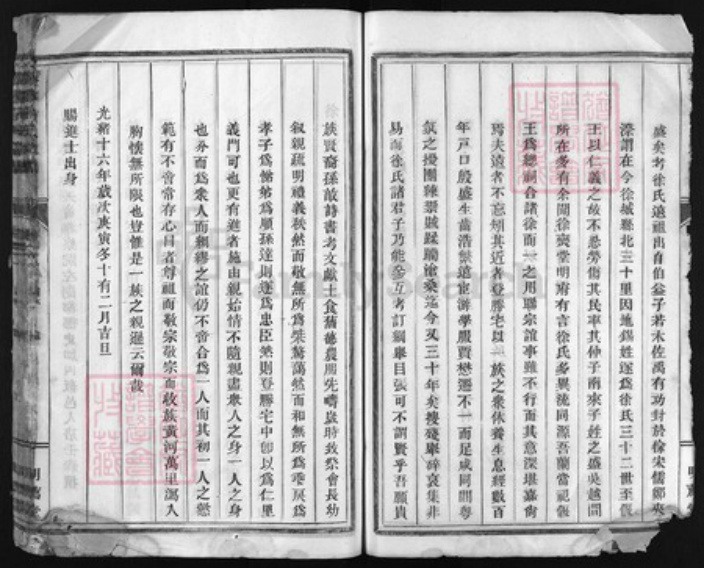 盛矣考徐氏遠祖出自伯益子若木佐禹有功對於徐宋儒鄭夾
漈謂在今徐城縣北三十里因地錫姓遂為徐氏三十二世至偃
王以仁義之故不忍勞傷其民率其仲子南來子姓之盛吳越間
所在多有余聞徐
堂明府有言徐氏多異流同源吾蘭當祀偃
王為總祠合諸徐而一之用聯宗誼事雖不行而其意深堪嘉尚
焉夫遠者不忘矧其近者登勝宅以一族之衆休養生息經數百
年戶口殷盛生齒浩繁遠宦游學服賈懋遷不一而足咸同間粵
氛之擾團練禦賊蹂躪滄桑迄今又三十年矣搜殘舉
哀集非
易而徐氏諸君子乃能參互考訂綱舉目張可不謂賢乎吾願貴
族賢裔孫敬詩書考文獻士食舊德農服先疇歲時致祭會長幼
敘親疏明禮義秩然而敬無所為桀驁藹然而和無所為乖戾為
孝子為悌弟為順孫達則遂為忠臣然則登勝宅中卽以為仁里
義門可也更有進者施由親始情不隨親盡衆人之身一人之身
也分而為衆人而綢繆之誼仍不啻合為一人而其初一人之懿
範有不啻常存心目者尊祖而敬宗敬宗而收族黃河萬里瀉入
胸懷無所限也豈惟是一族之親遜云爾哉
光緒十六年歲次庚寅冬十有二月吉旦
賜進士出身